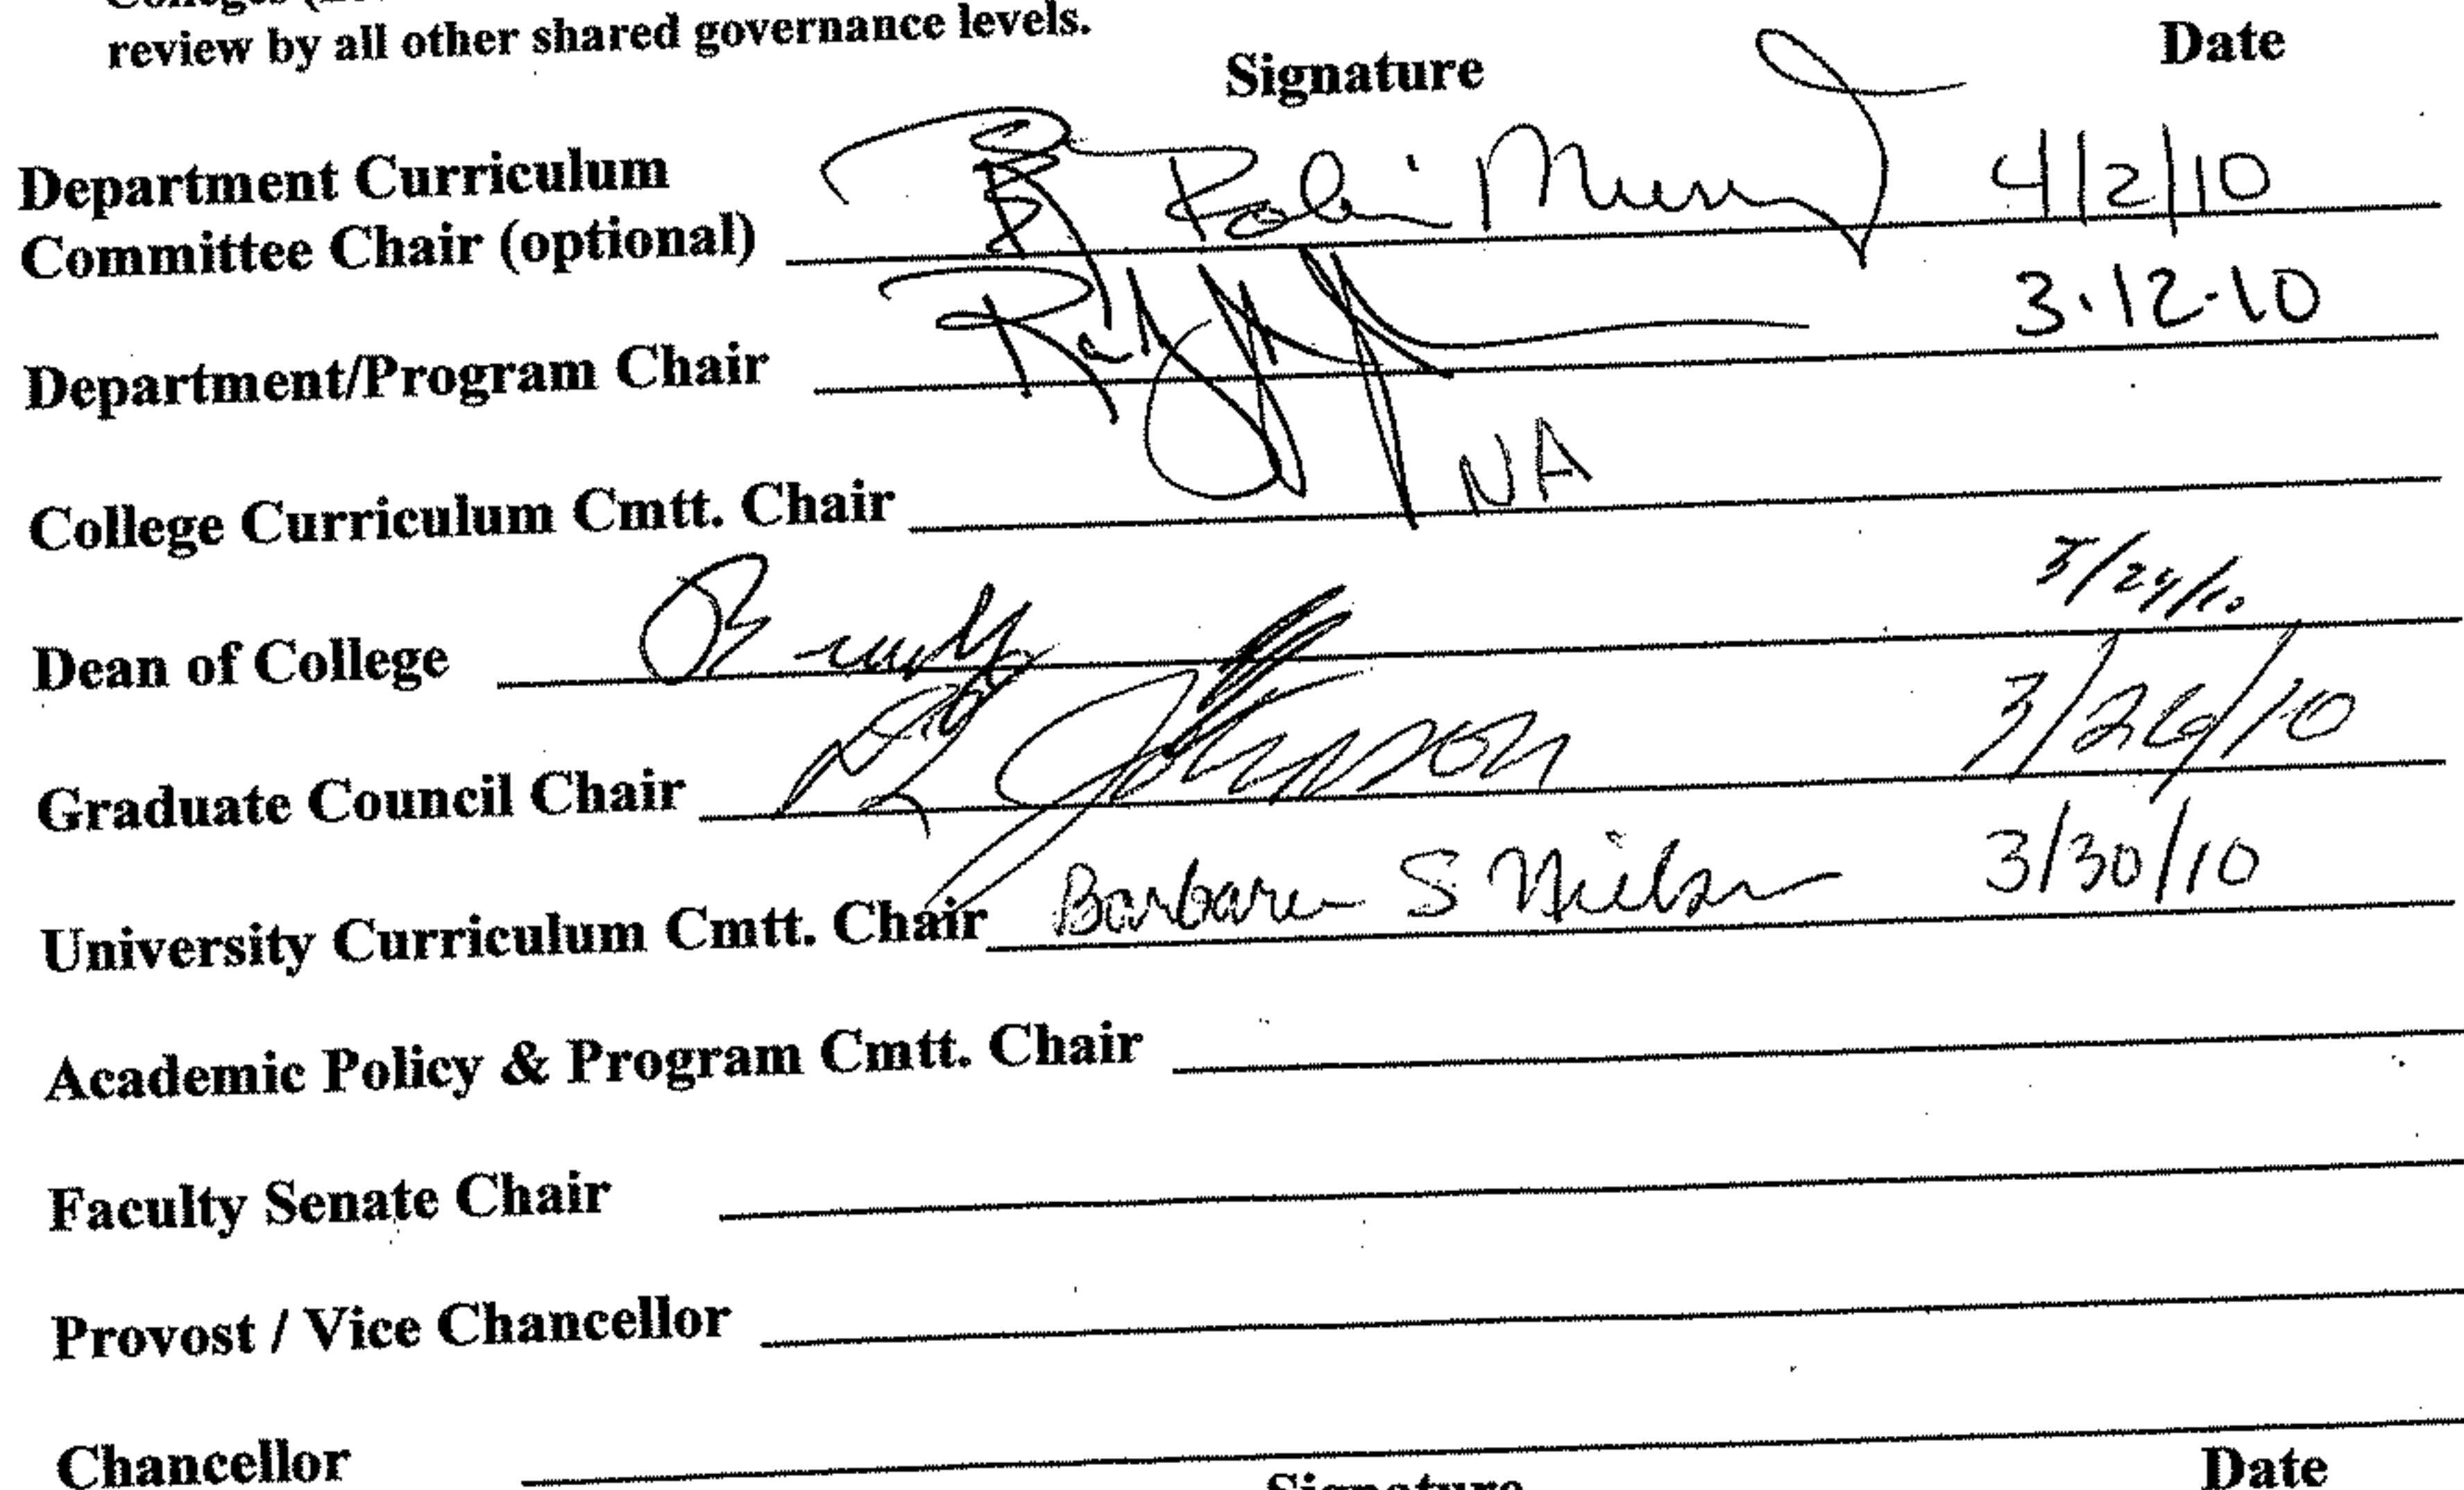 review by all other shared governance levels.
Signature Date
Department Curriculum
Committee Chair (optional) Robin Murray 4/2/10
Department/Program Chair 3.12.10
College Curriculum Cmtt. Chair NA
Dean of College 3/24/10
Graduate Council Chair Johnson 3/26/10
University Curriculum Cmtt. Chair Barbara S Nielsen 3/30/10
Academic Policy & Program Cmtt. Chair
Faculty Senate Chair
Provost / Vice Chancellor
Chancellor
Signature Date